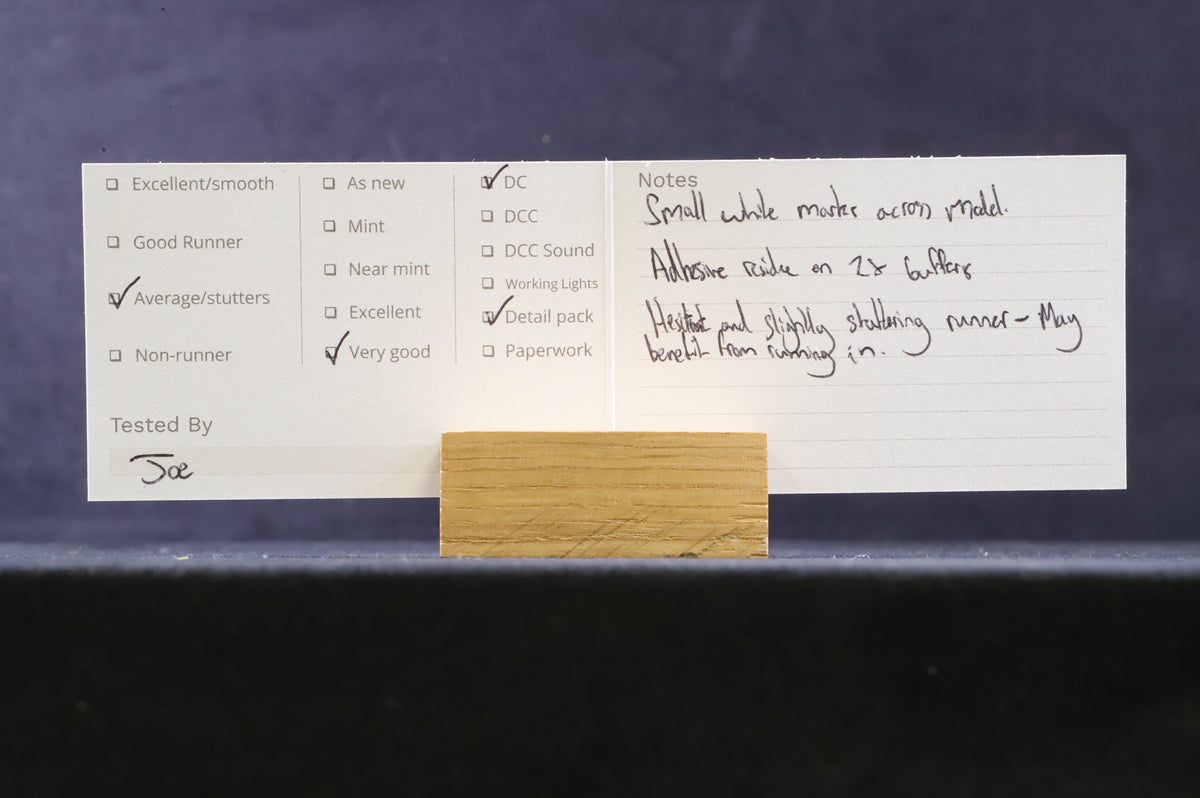 Excellent/smooth
Good Runner
✓ Average/stutters
Non-runner
As new
Mint
Near mint
Excellent
✓ Very good
✓ DC
DCC
DCC Sound
Working Lights
✓ Detail pack
Paperwork
Tested By
Joe
Notes
Small white marks across model.
Adhesive residue on 2x buffers
Hesitant and slightly stuttering runner - May
benefit from running in.